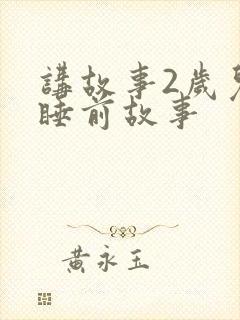 講故事2歲兒
睡前故事
黃永玉